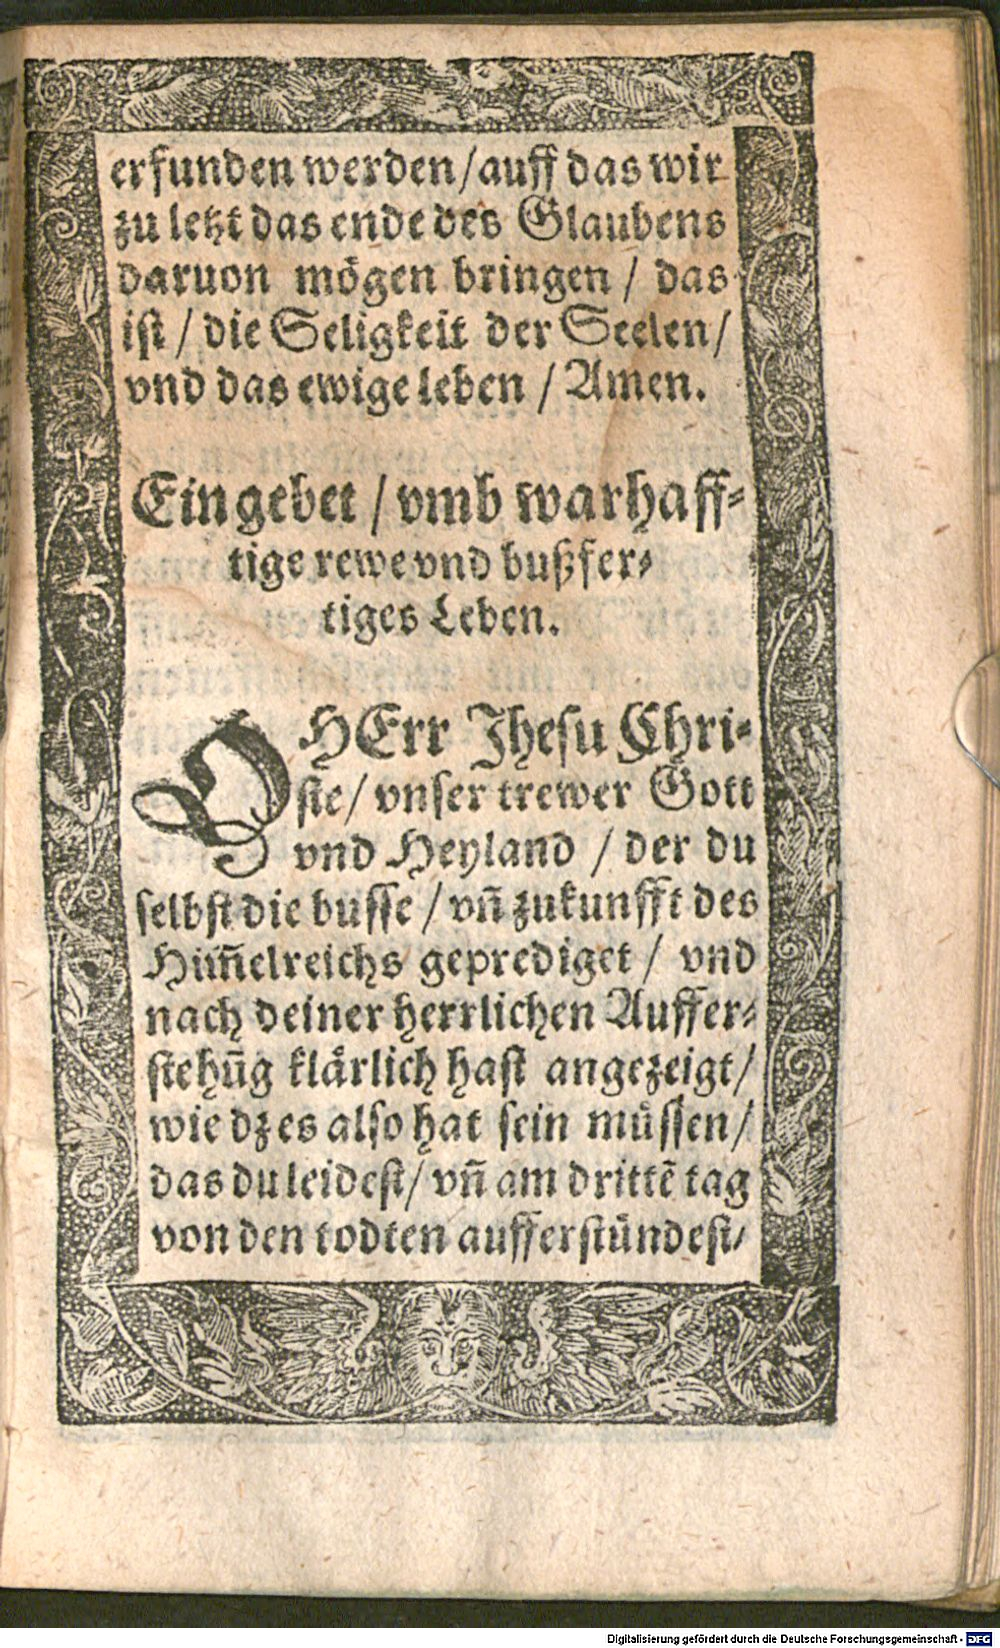 erfunden werden/auff das wir
zu letzt das ende des Glaubens
daruon mögen bringen / das
ist / die Seligkeit der Seelen/
vnd das ewige leben / Amen.
Ein gebet / vmb warhaff⸗
tige rewe vnd bußfer⸗
tiges Leben.
O HErr Jhesu Chri⸗
ste/ vnser trewer Gott
vnd Heyland / der du
selbst die busse / vn̄ zukunfft des
Him̄elreichs geprediget / vnd
nach deiner herrlichen Auffer⸗
stehūg klärlich hast angezeigt/
wie dz es also hat sein müssen/
das du leidest/ vn̄ am drittē tag
von den todten aufferstündest/
Digitalisierung gefördert durch die Deutsche Forschungsgemeinschaft - DFG